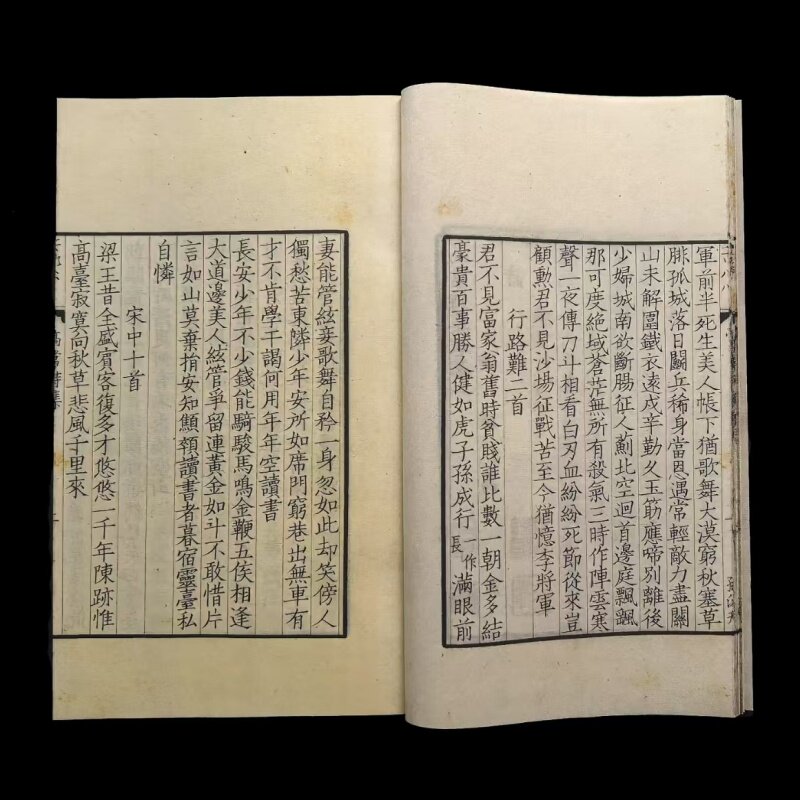 軍前半死生美人帳下猶歌舞大漠窮秋塞草
腓孤城落日鬭兵稀身當恩遇常輕敵力盡關
山未解圍鐵衣遠戍辛勤久玉筯應啼別離後
少婦城南欲斷腸征人薊北空迴首邊庭飄飄
那可度絕域蒼茫無所有殺氣三時作陣雲寒
聲一夜傳刀斗相看白刃血紛紛死節從來豈
顧勲君不見沙場征戰苦至今猶憶李將軍
行路難二首
君不見富家翁舊時貧賤誰比數一朝金多結
豪貴百事勝人健如虎子孫成行一作長滿眼前
妻能管絃妾歌舞自矜一身忽如此却笑傍人
獨愁苦東隣少年安所如席門窮巷出無車有
才不肯學干謁何用年年空讀書
長安少年不少錢能騎駿馬鳴金鞭五侯相逢
大道邊美人絃管爭留連黃金如斗不敢惜片
言如山莫棄捐安知顦顇讀書者暮宿靈臺私
自憐
宋中十首
梁王昔全盛賓客復多才悠悠一千年陳跡惟
高臺寂寞向秋草悲風千里來
高常詩集